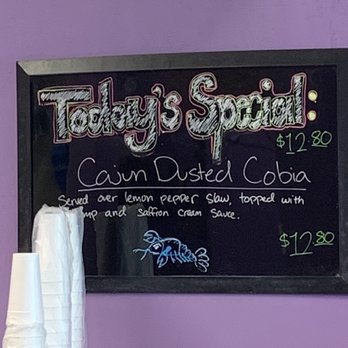 Today's Special:
$12.80
Cajun Dusted Cobia
Served over lemon pepper slaw, topped with
and saffron cream sauce.
$12.80